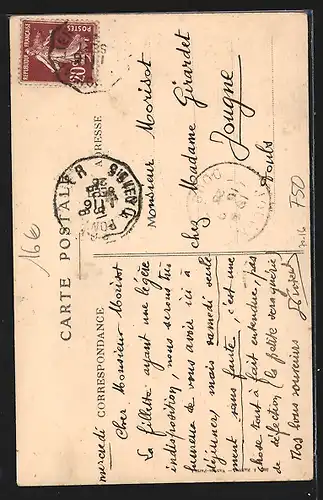 CARTE POSTALE
CORRESPONDANCE
ADRESSE
RÉPUBLIQUE FRANÇAISE
POSTES
20
Monsieur Morisot
chez Madame Girardet
Jougne
Doubs
mercredi
Cher Monsieur Morisot
La fillette ayant une légère
indisposition, nous serons très
heureux de vous avoir ici à
déjeuner, mais samedi seule
ment sans faute, c'est une
chose tout à fait entendue, pas
de défection (la petite
Nos bons souvenirs
16€
F50